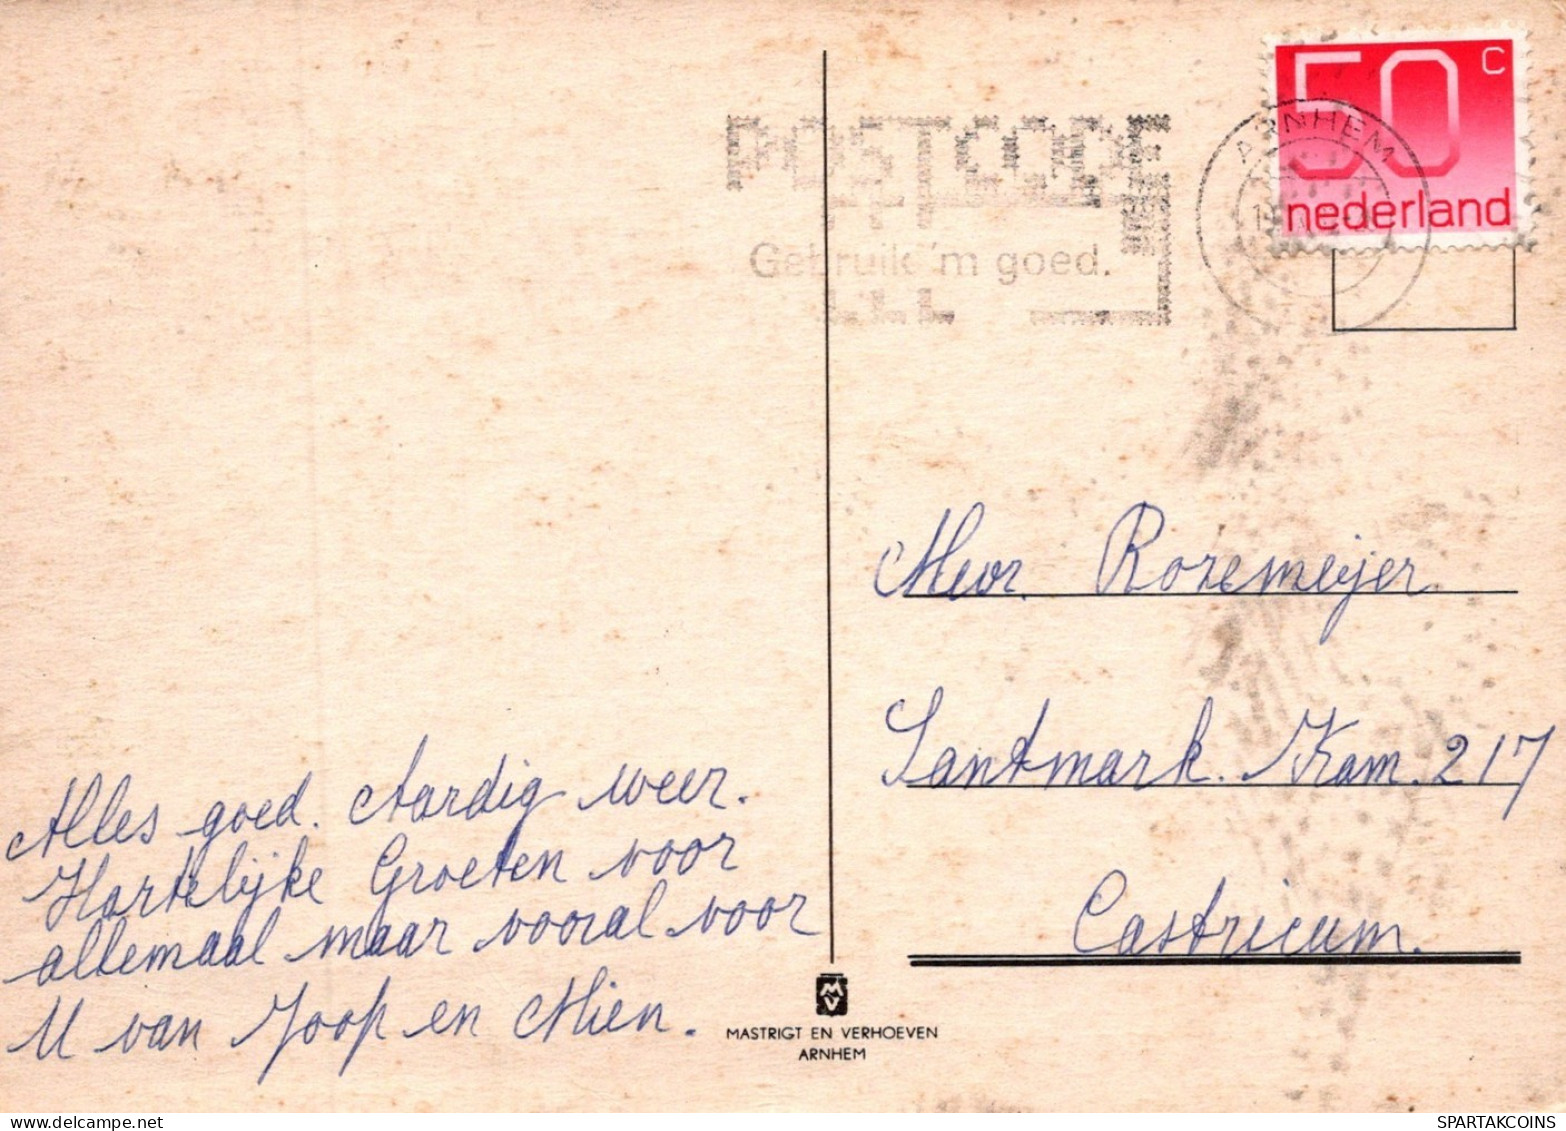 50 c
nederland
ARNHEM
POSTCODE
Gebruik 'm goed.
Mevr. Rozemeijer
Santmark. Kam. 217
Castricum.
Alles goed. Aardig weer.
Hartelijke Groeten voor
allemaal maar vooral voor
U van Joop en Mien.
MV
MASTRIGT EN VERHOEVEN
ARNHEM
SPARTAKCOINS